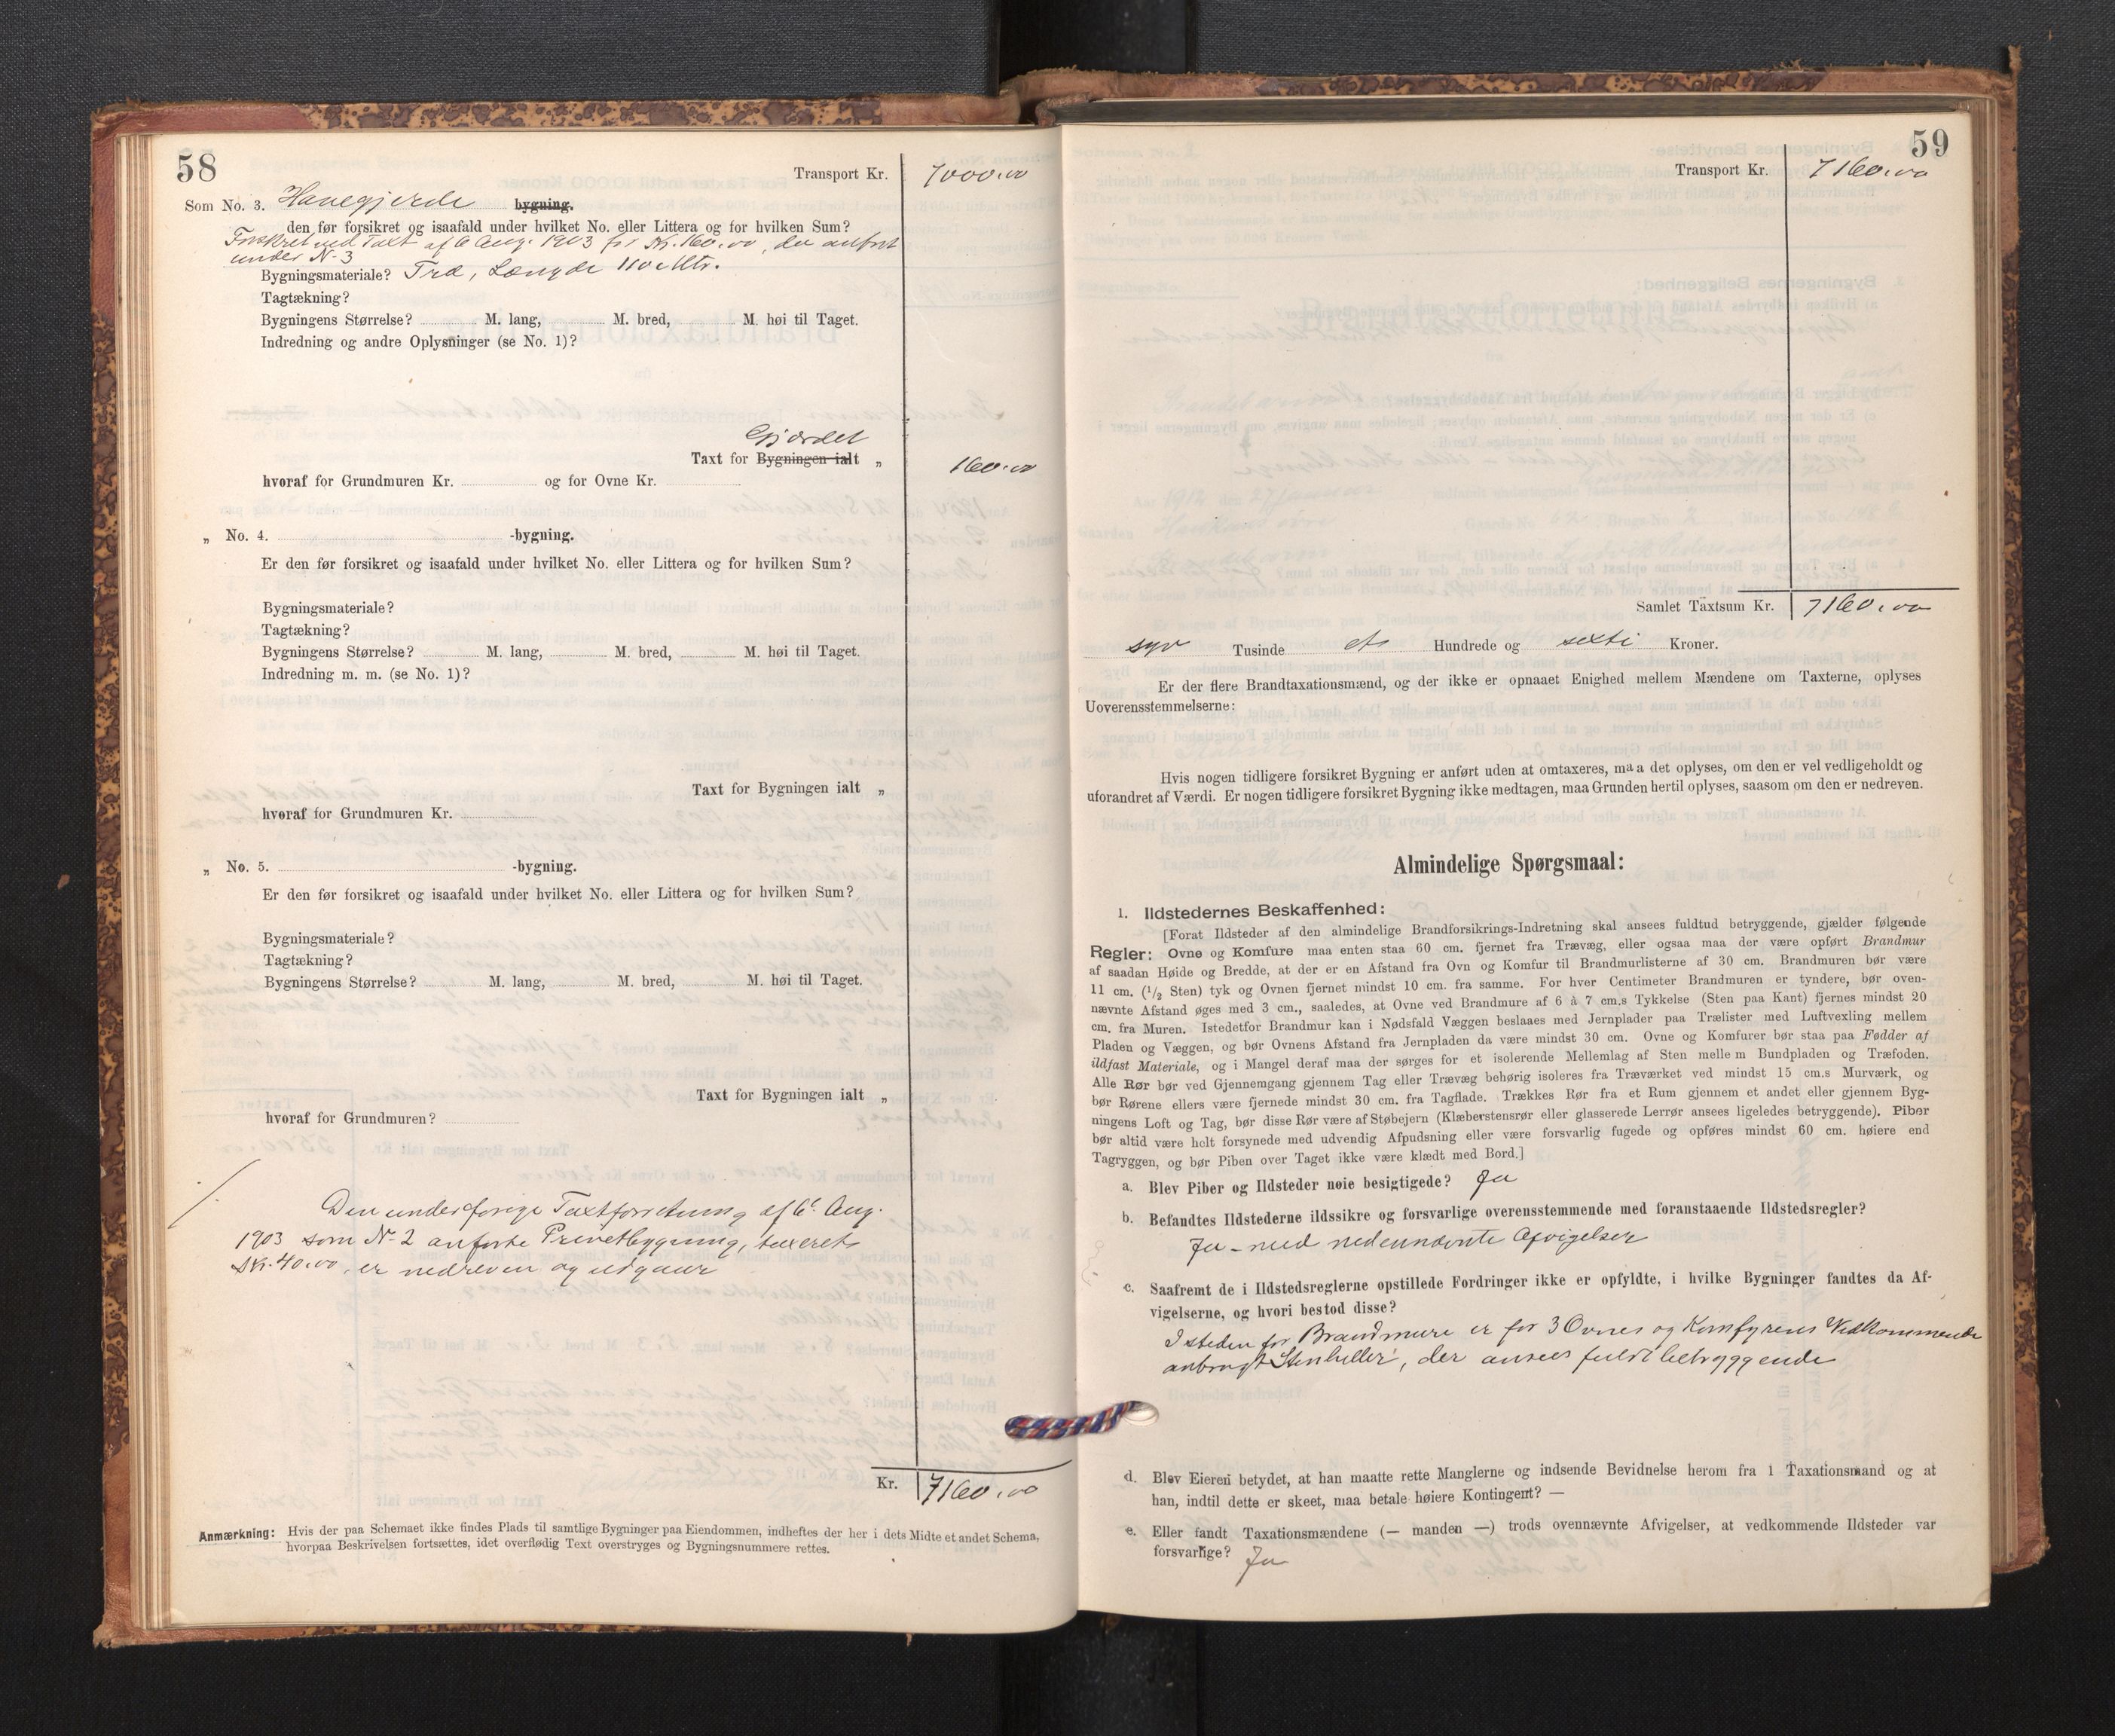 58
Transport Kr. 7000.00
Som No. 3. Havegjerde bygning.
den før forsikret og isaafald under hvilket No. eller Littera og for hvilken Sum?
Forsikret ved Taxt af 6 Aug. 1903 for Kr. 160.00, der anført
under No 3
Bygningsmateriale? Træ, Længde 110 Mtr.
Tagtækning?
Bygningens Størrelse? M. lang, M. bred, M. høi til Taget.
Indredning og andre Oplysninger (se No. 1)?
Gjærdet
Taxt for Bygningen ialt „ 160.00
hvoraf for Grundmuren Kr. og for Ovne Kr.
„ No. 4. -bygning.
Er den før forsikret og isaafald under hvilket No. eller Littera og for hvilken Sum?
Bygningsmateriale?
Tagtækning?
Bygningens Størrelse? M. lang, M. bred, M. høi til Taget.
Indredning m. m. (se No. 1)?
Taxt for Bygningen ialt „
hvoraf for Grundmuren Kr.
„ No. 5. -bygning.
Er den før forsikret og isaafald under hvilket No. eller Littera og for hvilken Sum?
Bygningsmateriale?
Tagtækning?
Bygningens Størrelse? M. lang, M. bred, M. høi til Taget.
Taxt for Bygningen ialt „
hvoraf for Grundmuren?
Den under forrige Taxtforretning af 6. Aug.
1903 som No 2 anførte Privetbygning, taxeret
Kr. 40.00, er nedreven og udgaar
Kr. 7160.00
Anmærkning: Hvis der paa Schemaet ikke findes Plads til samtlige Bygninger paa Eiendommen, indheftes der her i dets Midte et andet Schema,
hvorpaa Beskrivelsen fortsættes, idet overflødig Text overstryges og Bygningsnummere rettes.
59
Transport Kr. 7160.00
Samlet Taxtsum Kr. 7160.00
syv Tusinde et Hundrede og sexti Kroner.
Er der flere Brandtaxationsmænd, og der ikke er opnaaet Enighed mellem Mændene om Taxterne, oplyses
Uoverensstemmelserne:
Hvis nogen tidligere forsikret Bygning er anført uden at omtaxeres, maa det oplyses, om den er vel vedligeholdt og
uforandret af Værdi. Er nogen tidligere forsikret Bygning ikke medtagen, maa Grunden hertil oplyses, saasom om den er nedreven.
Almindelige Spørgsmaal:
1. Ildstedernes Beskaffenhed:
[Forat Ildsteder af den almindelige Brandforsikrings-Indretning skal ansees fuldtud betryggende, gjælder følgende
Regler: Ovne og Komfure maa enten staa 60 cm. fjernet fra Trævæg, eller ogsaa maa der være opført Brandmur
af saadan Høide og Bredde, at der er en Afstand fra Ovn og Komfur til Brandmurlisterne af 30 cm. Brandmuren bør være
11 cm. (1/2 Sten) tyk og Ovnen fjernet mindst 10 cm. fra samme. For hver Centimeter Brandmuren er tyndere, bør oven-
nævnte Afstand øges med 3 cm., saaledes, at Ovne ved Brandmure af 6 à 7 cm.s Tykkelse (Sten paa Kant) fjernes mindst 20
cm. fra Muren. Istedetfor Brandmur kan i Nødsfald Væggen beslaaes med Jernplader paa Trælister med Luftvexling mellem
Pladen og Væggen, og bør Ovnens Afstand fra Jernpladen da være mindst 30 cm. Ovne og Komfurer bør staa paa Fødder af
ildfast Materiale, og i Mangel deraf maa der sørges for et isolerende Mellemlag af Sten mellem Bundpladen og Træfoden.
Alle Rør bør ved Gjennemgang gjennem Tag eller Trævæg behørig isoleres fra Træværket ved mindst 15 cm.s Murværk, og
bør Rørene ellers være fjernede mindst 30 cm. fra Tagflade. Trækkes Rør fra et Rum gjennem et andet eller gjennem Byg-
ningens Loft og Tag, bør disse Rør være af Støbejern (Klæberstensrør eller glasserede Lerrør ansees ligeledes betryggende). Piber
bør altid være helt forsynede med udvendig Afpudsning eller være forsvarlig fugede og opføres mindst 60 cm. høiere end
Tagryggen, og bør Piben over Taget ikke være klædt med Bord.]
a. Blev Piber og Ildsteder nøie besigtigede? Ja
b. Befandtes Ildstederne ildssikre og forsvarlige overensstemmende med foranstaaende Ildstedsregler?
Ja – med nedennævnte Afvigelser
c. Saafremt de i Ildstedsreglerne opstillede Fordringer ikke er opfyldte, i hvilke Bygninger fandtes da Af-
vigelserne, og hvori bestod disse?
Isteden for Brandmure er for 3 Ovnes og Komfyrens Vedkommende
anbragt Stenheller, der ansees fuldt betryggende
d. Blev Eieren betydet, at han maatte rette Manglerne og indsende Bevidnelse herom fra 1 Taxationsmand og at
han, indtil dette er skeet, maa betale høiere Kontingent? —
e. Eller fandt Taxationsmændene (— manden —) trods ovennævnte Afvigelser, at vedkommende Ildsteder var
forsvarlige? Ja